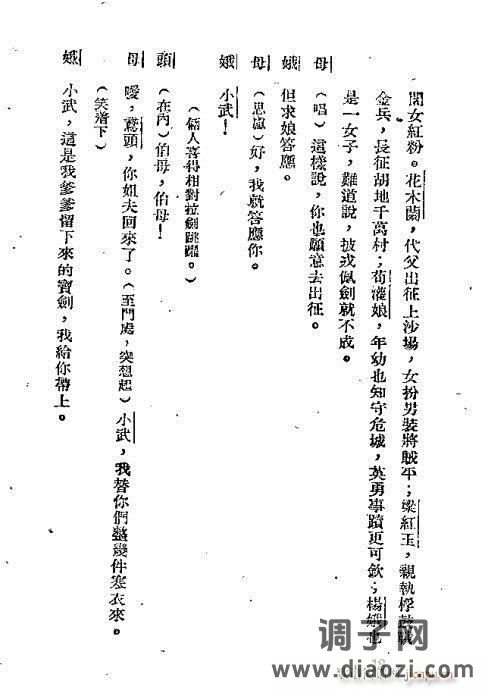 閨女紅粉。花木蘭，代父出征上沙場，女扮男裝將賊平；梁紅玉，親執桴鼓戰
金兵，長征胡地千萬村；荀灌娘，年幼也知守危城，英勇事蹟更可欽；楊娥也
是一女子，難道說，披戎佩劍就不成。
母　（唱）這樣說，你也願意去出征。
娥　但求娘答應。
母　（思㝷）好，我就答應你。
娥　小武！
（倆人喜得相對拉劍跳躍。）
頭　（在內）伯母，伯母！
母　噯，鷟頭，你姐夫回來了。（至門處，突想起）小武，我替你們整幾件寒衣來。
（笑着下）
娥　小武，這是我爹爹留下來的寶劍，我給你帶上。
调子网
www.diaozi.com